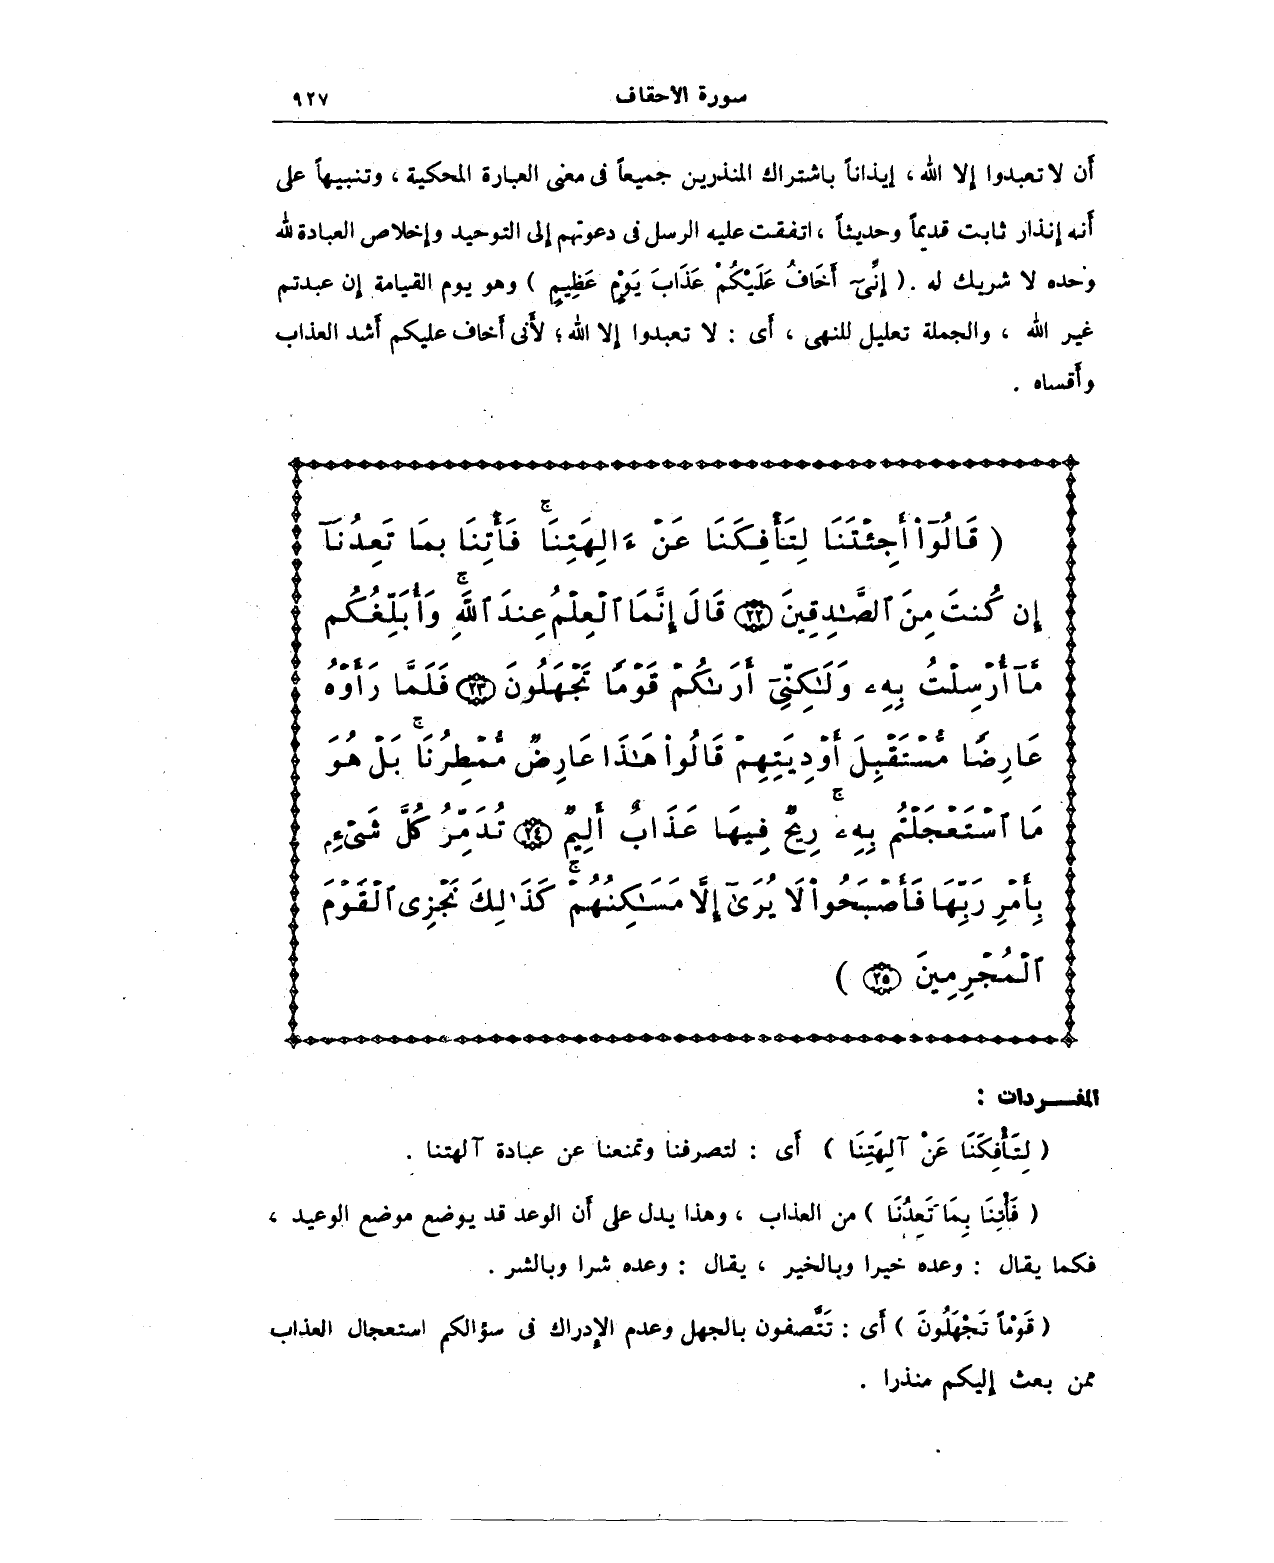 سورة الأحقاف ٩٢٧
أن لا تعبدوا إلا الله ، إيذاناً باشتراك المنذرين جميعاً فى معنى العبارة المحكية ، وتنبيهاً على
أنه إنذار ثابت قديماً وحديثاً ، اتفقت عليه الرسل فى دعوتهم إلى التوحيد وإخلاص العبادة لله
وحده لا شريك له . ( إِنِّىٓ أَخَافُ عَلَيْكُمْ عَذَابَ يَوْمٍ عَظِيمٍ ) وهو يوم القيامة إن عبدتم
غير الله ، والجملة تعليل للنهى ، أى : لا تعبدوا إلا الله ؛ لأنى أخاف عليكم أشد العذاب
وأقساه .
( قَالُوٓا۟ أَجِئْتَنَا لِتَأْفِكَنَا عَنْ ءَالِهَتِنَا ۖ فَأْتِنَا بِمَا تَعِدُنَآ
إِن كُنتَ مِنَ ٱلصَّـٰدِقِينَ ٢٢ قَالَ إِنَّمَا ٱلْعِلْمُ عِندَ ٱللَّهِ ۚ وَأُبَلِّغُكُم
مَّآ أُرْسِلْتُ بِهِۦ وَلَـٰكِنِّىٓ أَرَىٰكُمْ قَوْمًا تَجْهَلُونَ ٢٣ فَلَمَّا رَأَوْهُ
عَارِضًا مُّسْتَقْبِلَ أَوْدِيَتِهِمْ قَالُوا۟ هَـٰذَا عَارِضٌ مُّمْطِرُنَا ۚ بَلْ هُوَ
مَا ٱسْتَعْجَلْتُم بِهِۦ ۖ رِيحٌ فِيهَا عَذَابٌ أَلِيمٌ ٢٤ تُدَمِّرُ كُلَّ شَىْءٍۭ
بِأَمْرِ رَبِّهَا فَأَصْبَحُوا۟ لَا يُرَىٰٓ إِلَّا مَسَـٰكِنُهُمْ ۚ كَذَٰلِكَ نَجْزِى ٱلْقَوْمَ
ٱلْمُجْرِمِينَ ٢٥ )
المفــردات :
( لِتَأْفِكَنَا عَنْ آلِهَتِنَا ) أى : لتصرفنا وتمنعنا عن عبادة آلهتنا .
( فَأْتِنَا بِمَا تَعِدُنَا ) من العذاب ، وهذا يدل على أن الوعد قد يوضع موضع الوعيد ،
فكما يقال : وعده خيرا وبالخير ، يقال : وعده شرا وبالشر .
( قَوْماً تَجْهَلُونَ ) أى : تَتَّصفون بالجهل وعدم الإدراك فى سؤالكم استعجال العذاب
ممن بعث إليكم منذرا .